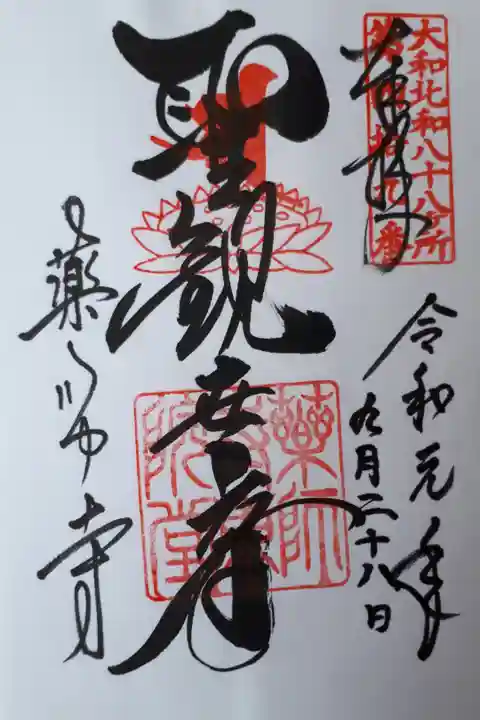 大和北和八十八ヶ所
奉拝
令和元年
九月二十八日
聖観世音
藥師
寺東
院堂
薬師寺